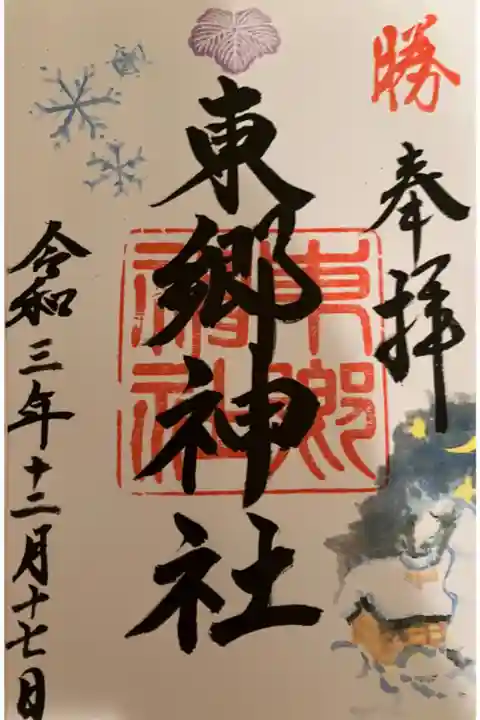 勝
奉拝
東郷神社
東郷神社
令和三年十二月十七日